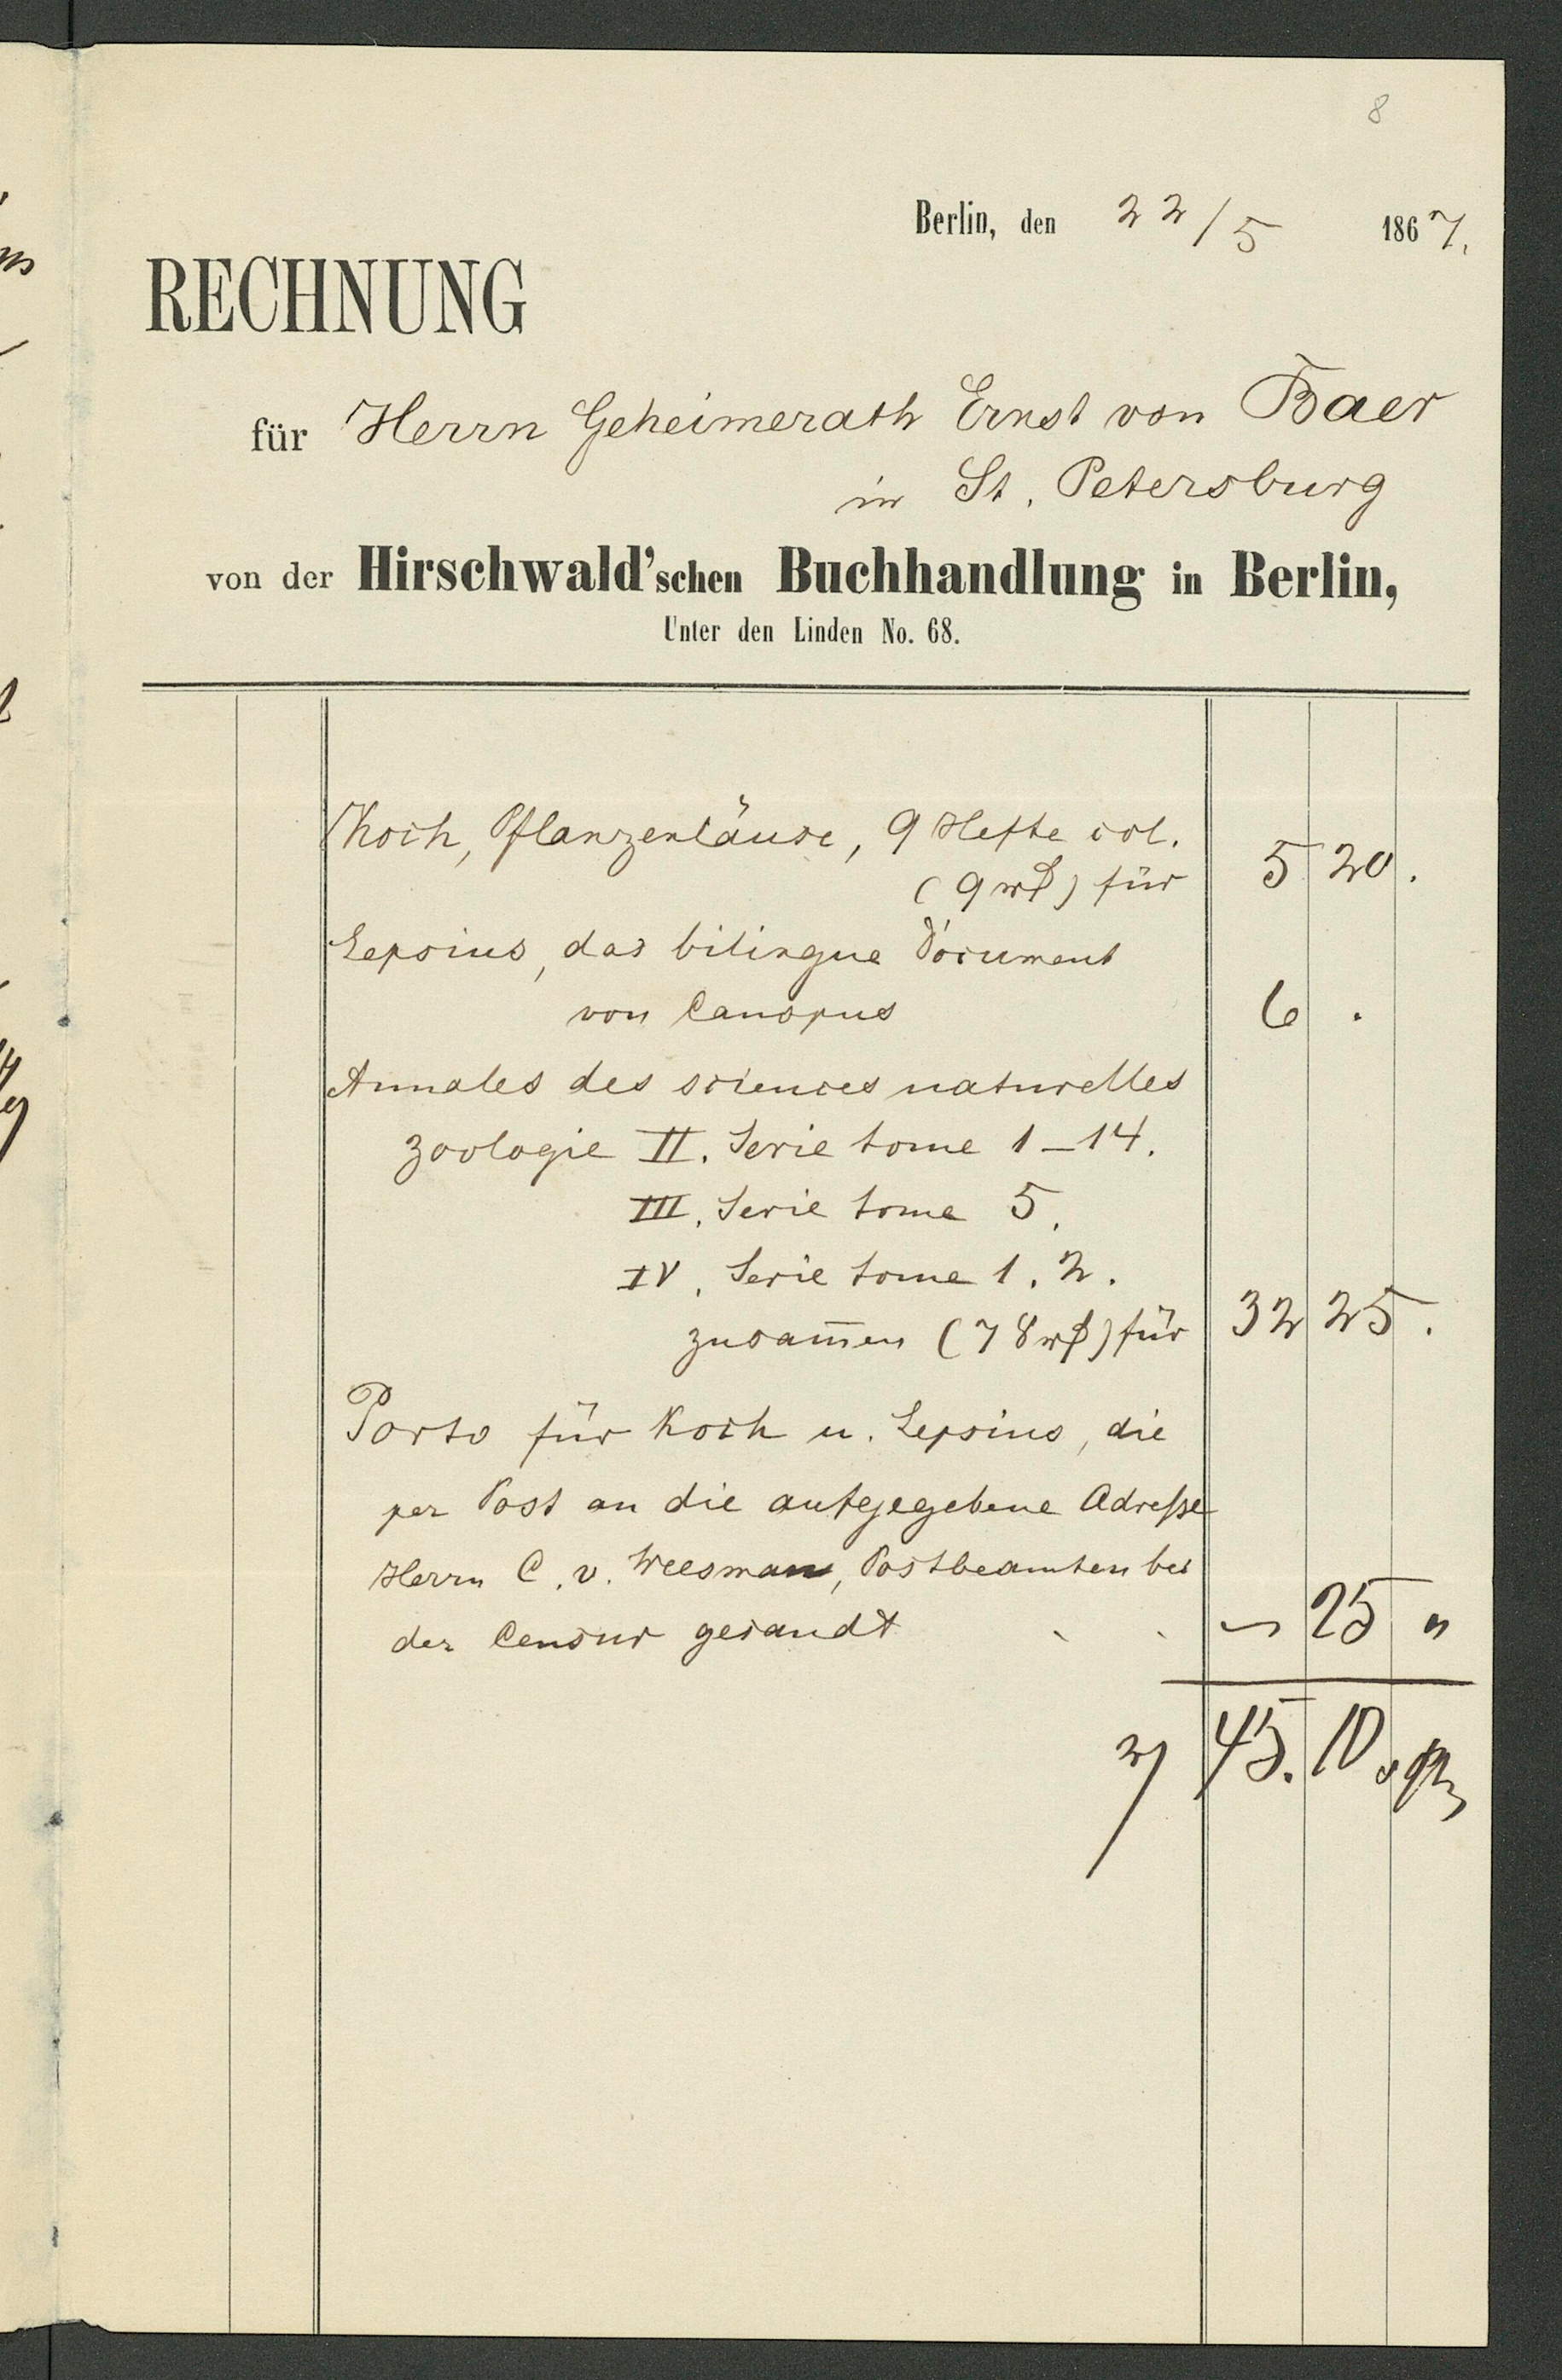 8
Berlin, den 22/5 1867.
RECHNUNG
für Herrn Geheimerath Ernst von Baer
in St. Petersburg
von der Hirschwald'schen Buchhandlung in Berlin,
Unter den Linden No. 68.
Koch, Pflanzenläuse, 9 Hefte col.
(9 rℓ) für 5 20.
Lepsius, das bilingue Document
von Canopus 6 .
Annales des sciences naturelles
Zoologie II. Serie tome 1–14.
III. Serie tome 5.
IV. Serie tome 1. 2.
zusam̅en (78 rℓ) für 32 25.
Porto für Koch u. Lepsius, die
per Post an die aufgegebene Adresse
Herrn C. v. Weesman, Postbeamten bei
der Censur gesandt – 25 "
45. 10 sgr